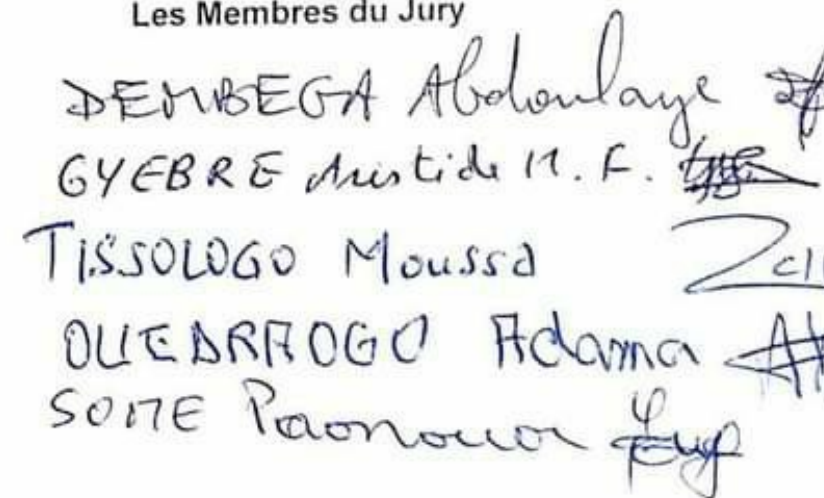 Les Membres du Jury
DEMBEGA Abdoulaye
GYEBRE Aristide M. F.
TISSOLOGO Moussa
OUEDRAOGO Adama
SOME